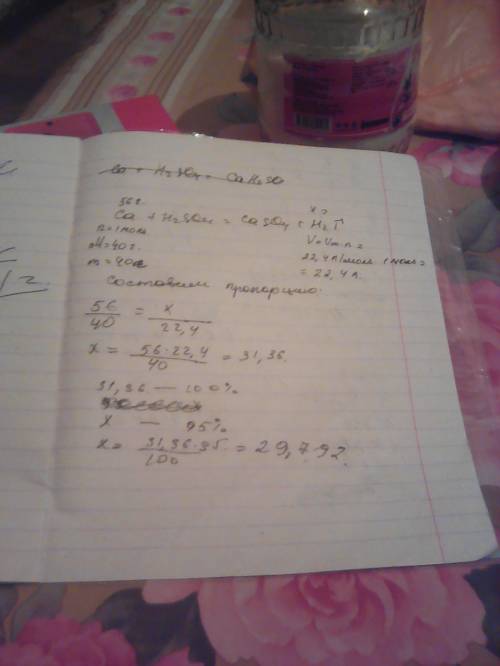 Ca + H₂SO₄ = CaH₂SO
56г. x л
Ca + H₂SO₄ = CaSO₄ + H₂↑
n=1моль V=Vm·n=
M=40г. 22,4л/моль·1моль=
m=40г = 22,4л.
Составим пропорцию:
56/40 = x/22,4
x = 56·22,4/40 = 31,36.
31,36 — 100%
x — 95%
x = 31,36·95/100 = 29,792.